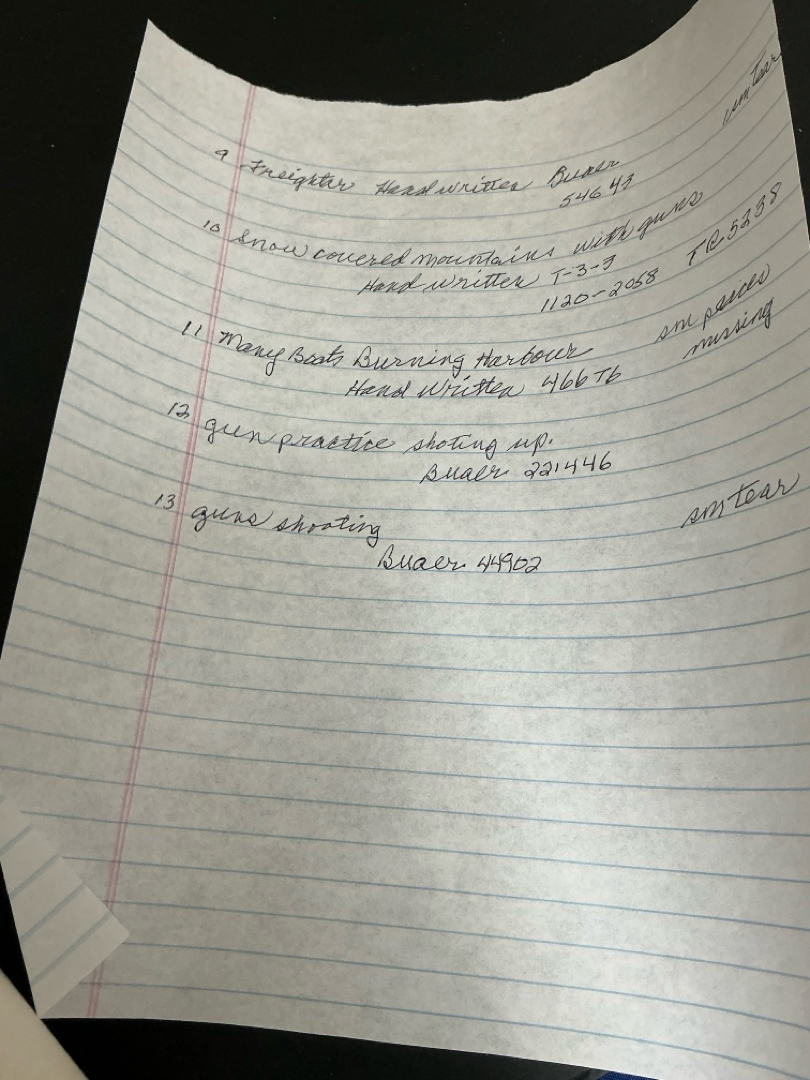 sm tear
9 Freighter Handwritten Buaer
54643
10 Snow covered mountains with guns
Hand written T-3-3 TR5238
1120-2058
11 Many Boats Burning Harbour sm peices
Hand written 466 T6 missing
12 gun practice shoting up.
Buaer 221446
13 guns shooting sm tear
Buaer 44902